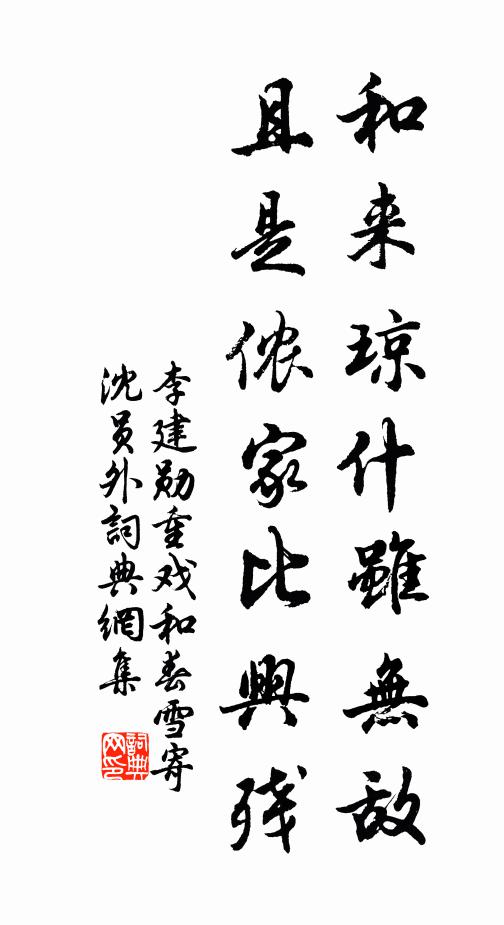 和来琼什雖無敌
且是侬家比興残
李建勋重戏和春雪寄
沈員外詞典網集
詞典網印